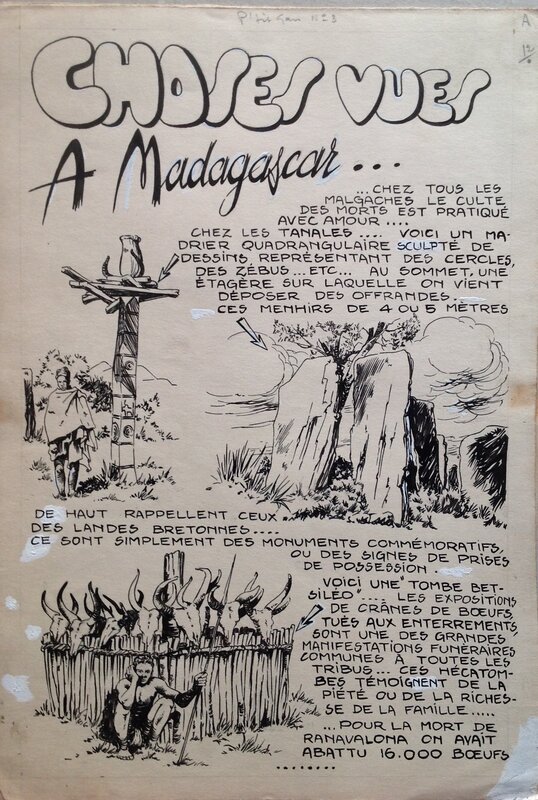 P'tit Gars N°3
A
12
CHOSES VUES
A Madagascar...
...CHEZ TOUS LES
MALGACHES LE CULTE
DES MORTS EST PRATIQUÉ
AVEC AMOUR....
CHEZ LES TANALES.... VOICI UN MA-
DRIER QUADRANGULAIRE SCULPTÉ DE
DESSINS, REPRÉSENTANT DES CERCLES,
DES ZÉBUS...ETC... AU SOMMET, UNE
ÉTAGÈRE SUR LAQUELLE ON VIENT
DÉPOSER DES OFFRANDES.
CES MENHIRS DE 4 OU 5 MÈTRES
DE HAUT RAPPELLENT CEUX...
DES LANDES BRETONNES....
CE SONT SIMPLEMENT DES MONUMENTS COMMÉMORATIFS,
OU DES SIGNES DE PRISES
DE POSSESSION.
VOICI UNE "TOMBE BET-
SILÉO".... LES EXPOSITIONS
DE CRÂNES DE BŒUFS,
TUÉS AUX ENTERREMENTS,
SONT UNE DES GRANDES
MANIFESTATIONS FUNÉRAIRES
COMMUNES À TOUTES LES
TRIBUS... CES HÉCATOM-
BES TÉMOIGNENT DE LA
PIÉTÉ OU DE LA RICHES-
SE DE LA FAMILLE.....
...POUR LA MORT DE
RANAVALONA ON AVAIT
ABATTU 16.000 BŒUFS
.......